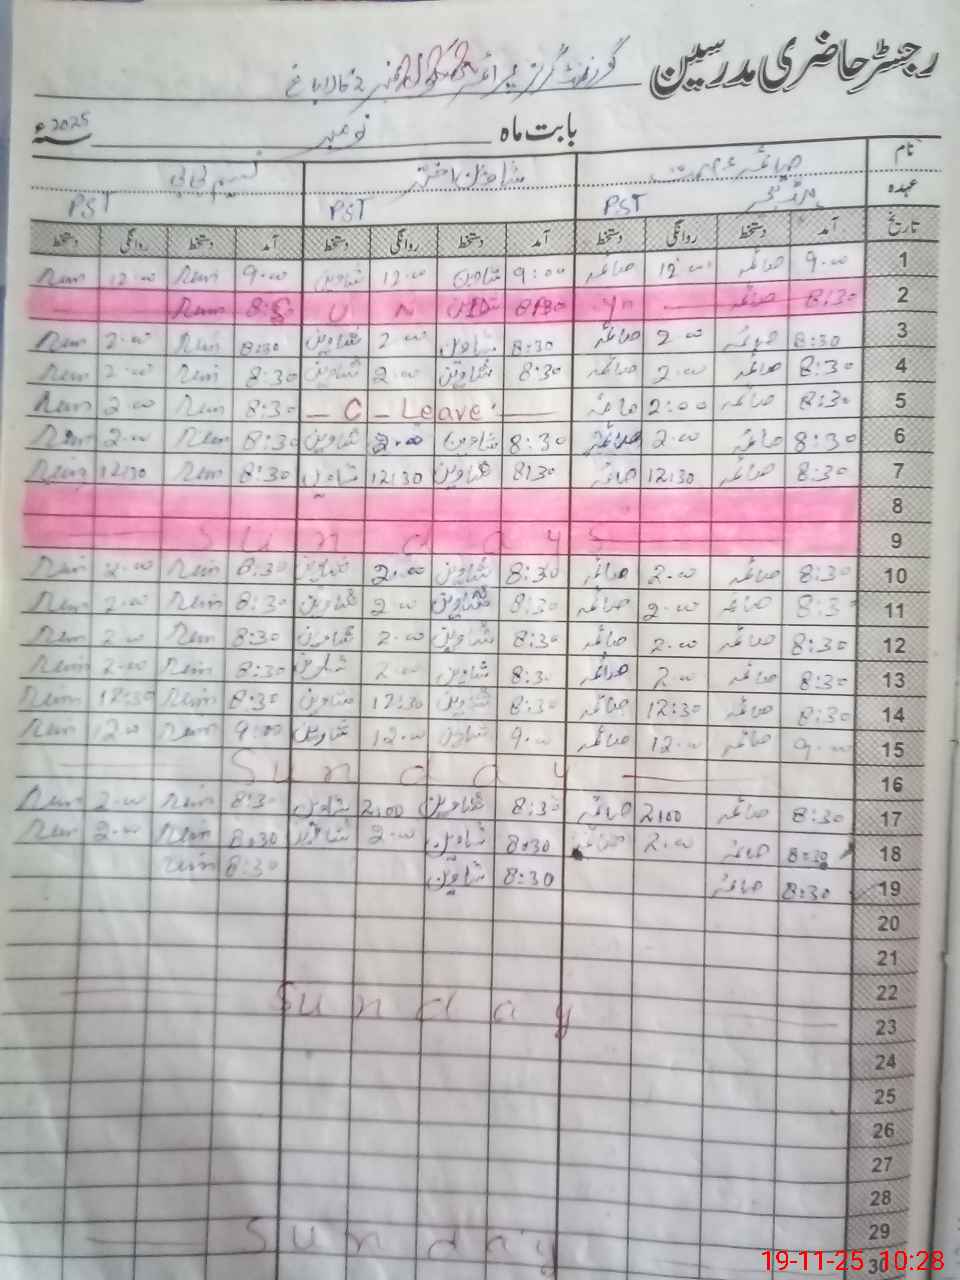 رجسٹر حاضری مدرسین گورنمنٹ گرلز پرائمری سکول نمبر 2 کالا باغ
بابت ماہ نومبر 2025ء
نام صائمہ شاہین اختر نسیم بی بی
عہدہ PST PST PST
تاریخ آمد دستخط روانگی دستخط آمد دستخط روانگی دستخط آمد دستخط روانگی دستخط
1 9.00 صائمہ 12.00 صائمہ 9:00 شاہین 12.00 شاہین 9.00 12.00
2 8:30 صائمہ 8:30 شاہین 8:30
3 8:30 صائمہ 2.00 صائمہ 8:30 شاہین 2.00 شاہین 8:30 2.00
4 8:30 صائمہ 2.00 صائمہ 8:30 شاہین 2.00 شاہین 8:30 2.00
5 8:30 صائمہ 2:00 صائمہ — C - Leave — 8:30 2.00
6 8:30 صائمہ 2.00 صائمہ 8:30 شاہین 2.00 شاہین 8:30 2.00
7 8:30 صائمہ 12:30 صائمہ 8:30 شاہین 12:30 شاہین 8:30 12:30
8
9 Sunday
10 8:30 صائمہ 2.00 صائمہ 8:30 شاہین 2.00 شاہین 8:30 2.00
11 8:30 صائمہ 2.00 صائمہ 8:30 شاہین 2.00 شاہین 8:30 2.00
12 8:30 صائمہ 2.00 صائمہ 8:30 شاہین 2.00 شاہین 8:30 2.00
13 8:30 صائمہ 2.00 صائمہ 8:30 شاہین 2.00 شاہین 8:30 2.00
14 8:30 صائمہ 12:30 صائمہ 8:30 شاہین 12:30 شاہین 8:30 12:30
15 9.00 صائمہ 12.00 صائمہ 9.00 شاہین 12.00 شاہین 9:00 12.00
16 Sunday
17 8:30 صائمہ 2:00 صائمہ 8:30 شاہین 2:00 شاہین 8:30 2.00
18 8:30 صائمہ 2.00 صائمہ 8:30 شاہین 2.00 شاہین 8:30 2.00
19 8:30 صائمہ 8:30 شاہین 8:30
20
21
22
23 Sunday
24
25
26
27
28
29
30 Sunday
19-11-25 10:28